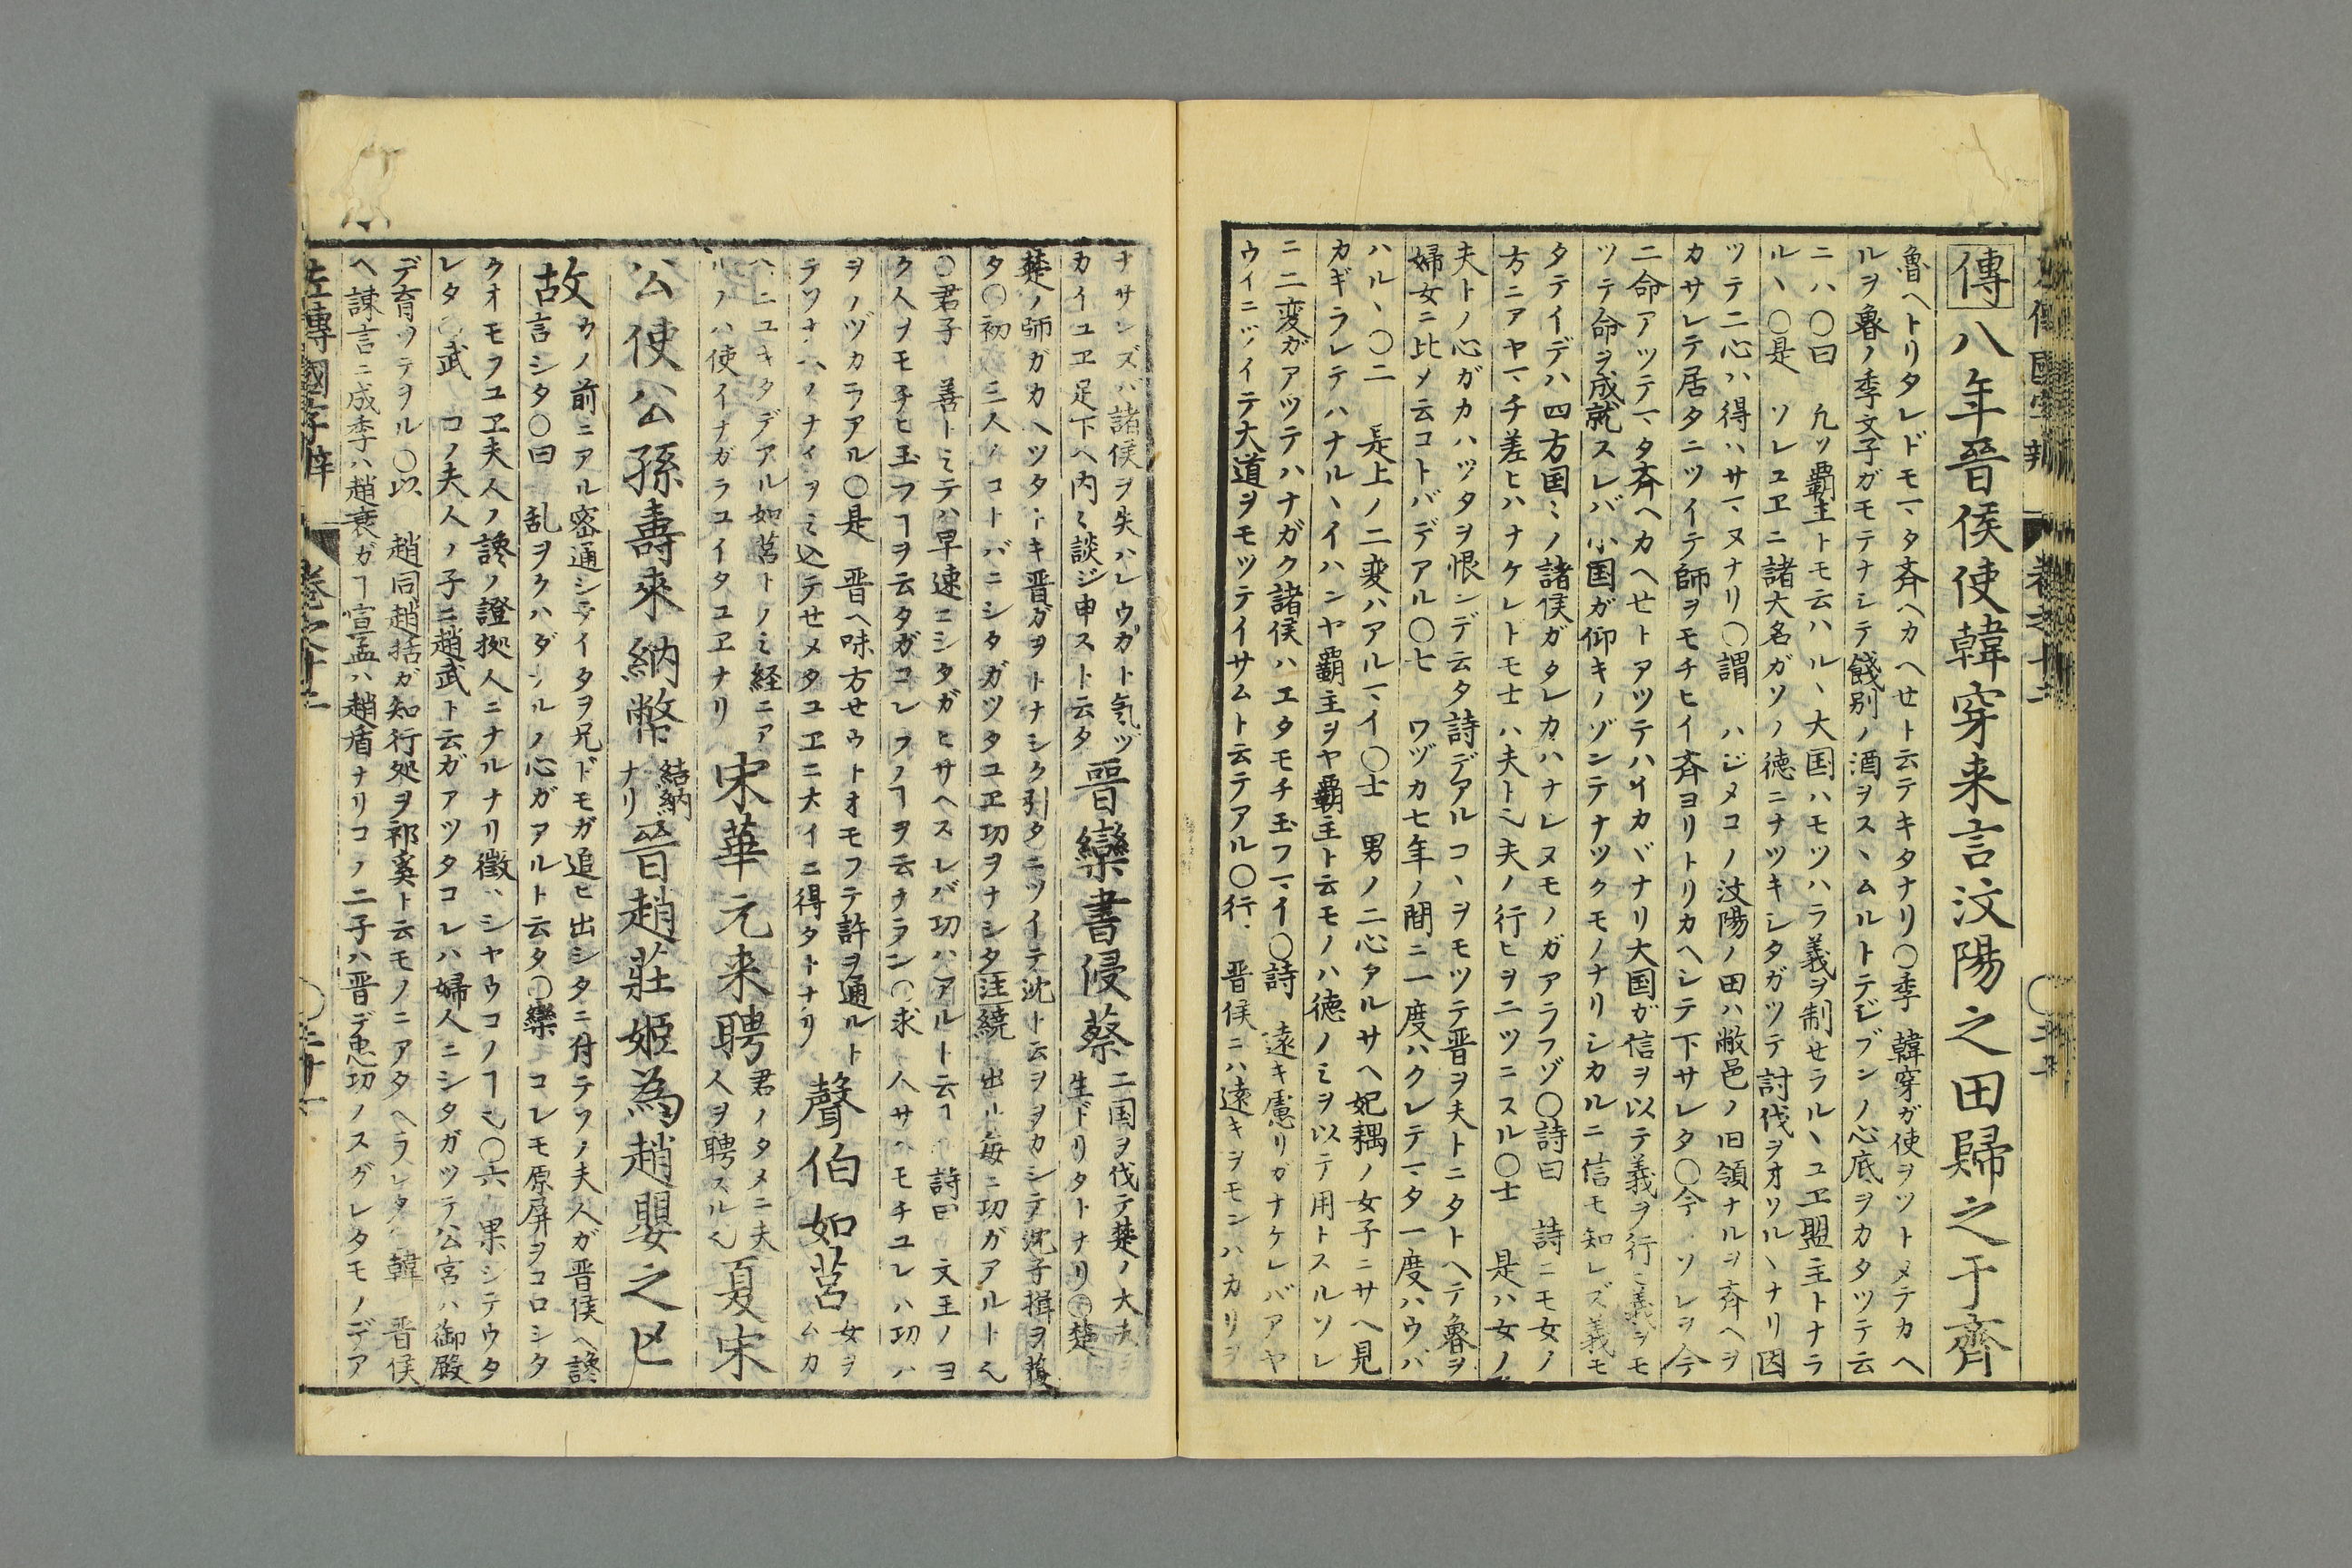 傳八年晉侯使韓穿来言汶陽之田歸之于齊
魯ヘトリタレドモマタ斉ヘカヘせト云テキタナリ○季 韓穿ガ使ヲツトメテカヘ
ルヲ魯ノ季文子ガモテナシテ餞別ノ酒ヲスヽムルトテジブンノ心底ヲカタツテ云
ニハ○曰 凢ソ覇主トモ云ハルヽ大国ハモツハラ義ヲ制せラルヽユヱ盟主トナラ
ルヽ○是 ソレユヱニ諸大名ガソノ徳ニナツキシタガツテ討伐ヲオソルヽナリ因
ツテ二心ハ得ハサマヌナリ○謂 ハジメコノ汶陽ノ田ハ敝邑ノ旧領ナルヲ斉ヘヲ
カサレテ居タニツイテ師ヲモチヒイ斉ヨリトリカヘシテ下サレタ○今 ソレヲ今
二命アツテマタ斉ヘカヘせトアツテハイカヾナリ大国ガ信ヲ以テ義ヲ行ミ義ヲモ
ツテ命ヲ成就スレバ小国ガ仰キノゾンテナツクモノナリシカルニ信モ知レズ義モ
タテイデハ四方国ミノ諸侯ガタレカハナレヌモノガアラフゾ○詩曰 詩ニモ女ノ
方ニアヤマチ差ヒハナケレトモ士ハ夫トモ夫ノ行ヒヲ二ツニスル○士 是ハ女ノ
夫トノ心ガカハツタヲ恨ンデ云タ詩デアルコヽヲモツテ晋ヲ夫トニタトヘテ魯ヲ
婦女ニ比メ云コトバデアル○七 ワヅカ七年ノ間ニ一度ハクレテマタ一度ハウバ
ハルヽ○二 是上ノ二変ハアルマイ○士 男ノ二心タルサヘ妃耦ノ女子ニサヘ見
カギラレテハナルヽイハンヤ覇主ヲヤ覇主ト云モノハ徳ノミヲ以テ用トスルソレ
ニ二変ガアツテハナガク諸侯ハエタモチ玉フマイ○詩 遠キ慮リガナケレバアヤ
ウイニツイテ大道ヲモツテイサムト云テアル○行 晋侯ニハ遠キヲモンハカリヲ
ナサンズバ諸侯ヲ失ハレウガト気ヅ
カイユヱ足下ヘ内ミ談ジ申スト云タ
晉欒書侵蔡
二国ヲ伐テ楚ノ大夫ヲ
生ドリタトナリ○楚
楚ノ師ガカヘツタトキ晋ガヲトナシク引タニツイテ沈ト云ヲヲカシテ沈子揖ヲ獲
タ○初 三人ノコトバニシタガツタユヱ功ヲナシタ注繞 出ル毎ニ功ガアルト也
○君子 善トミテハ早速ニシタガヒサヘスレバ功ハアルト云ヿ 詩曰 文王ノヨ
ク人ヲモチヒ玉フヿヲ云タガコレフノヿヲ云ナラン○求 人サヘモチユレハ功ハ
ヲノヅカラアル○是 晋ヘ味方せウトオモフテ許ヲ通ルト
テソナヘノナイヲミ込テせメタユヱニ大イニ得タトナリ
聲伯如莒
女ヲ
ムカ
ヘニユキタデアル如莒トノミ経ニア
ルノハ使イナガラユイタユヱナリ
宋華元来聘
君ノタメニ夫
人ヲ聘スル也
夏宋
公使公孫壽來納幣
結納
ナリ
晉趙莊姬為趙嬰之亡
故
カノ前ニアル密通シテイタヲ兄ドモガ追ヒ出シタニ付テソノ夫人ガ晋侯ヘ讒
言シタ○曰 乱ヲクハダツルノ心ガアルト云タ○欒 コレモ原屏ヲコロシタ
クオモフユヱ夫人ノ讒ノ證拠人ニナルナリ徴ハシヤウコノヿ也○六 果シテウタ
レタ○武 コノ夫人ノ子ニ趙武ト云ガアツタコレハ婦人ニシタガツテ公宮ハ御殿
デ育ツテヲル○以 趙同趙括ガ知行処ヲ祁奚ト云モノニアタヘラレタ 韓 晋侯
ヘ諫言ニ成季ハ趙衰ガヿ宣孟ハ趙盾ナリコノ二子ハ晋デ忠功ノスグレタモノデア
左傳國字辯 巻之十二